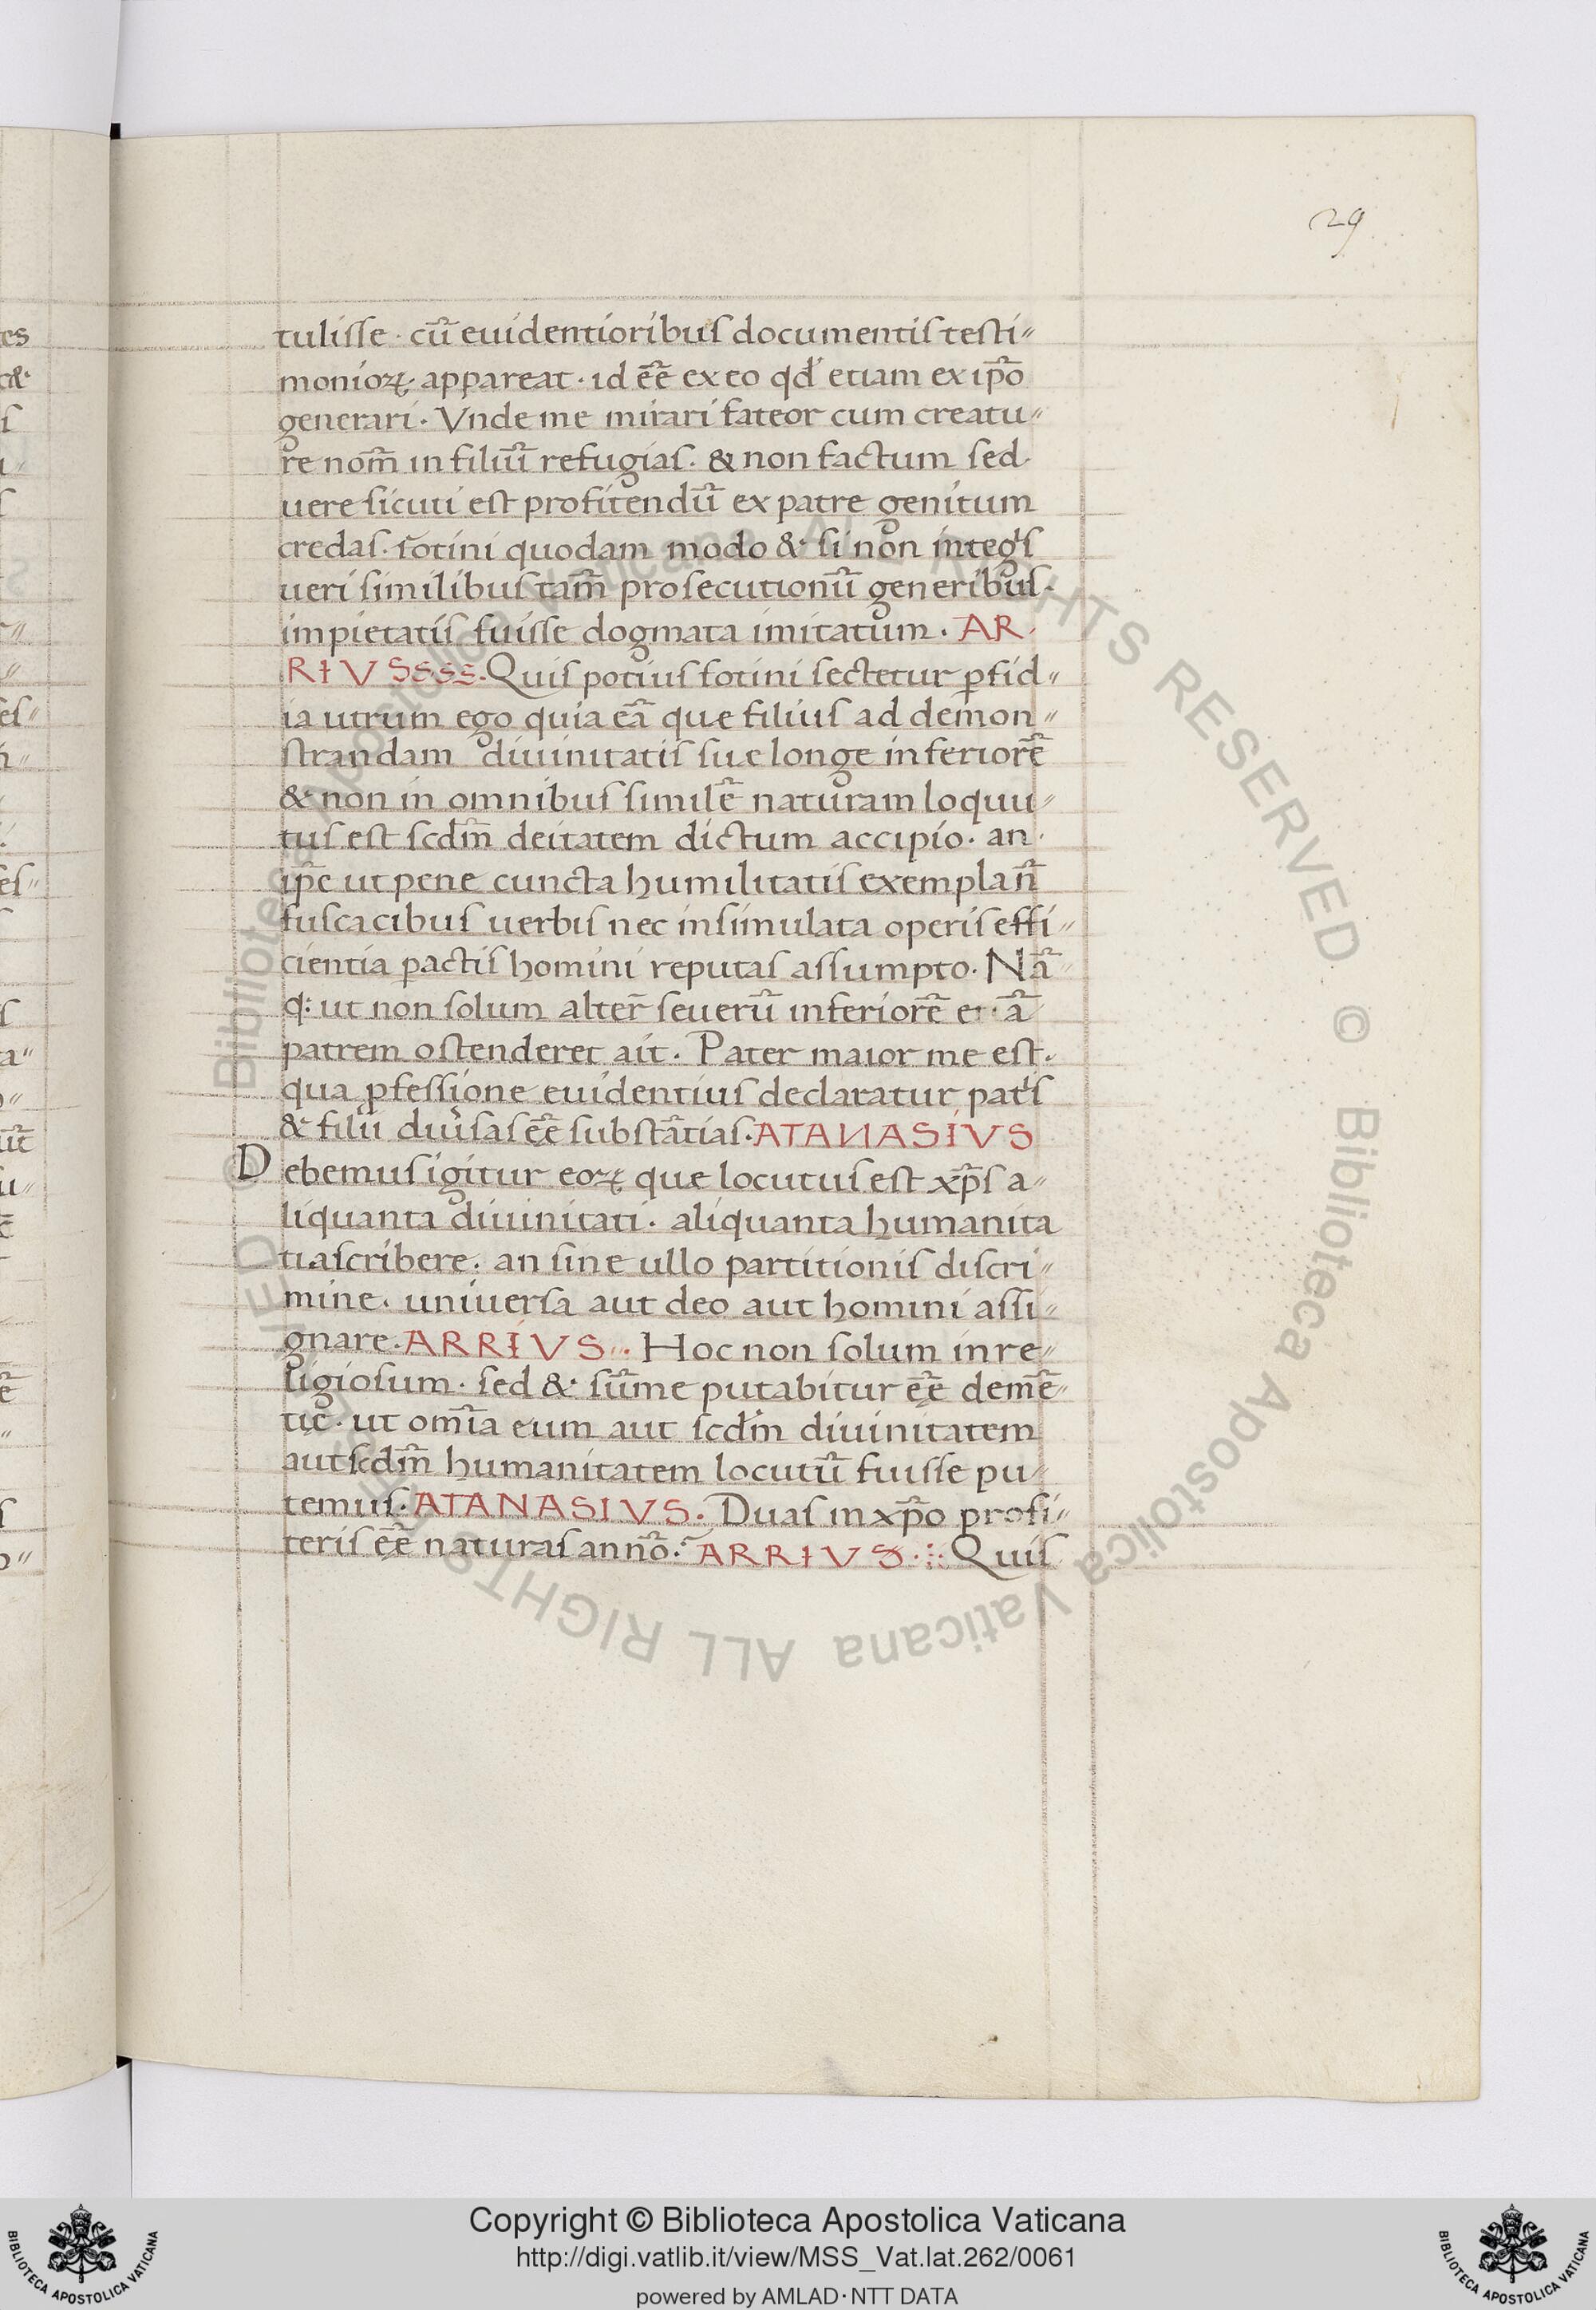 29
tulisse · cū euidentioribus documentis testi〃
monioꝝ · appareat · id eē̄ ex eo qd' etiam ex ip̄o
generari · Vnde me mirari fateor cum creatu〃
re nom̄ in filiū refugias · & non factum sed
uere sicuti est profitendū ex patre genitum
credas · fotini quodam modo & si non integis
ueri similibus tam̄ prosecutionū generibus ·
impietatis fuisse dogmata imitatum · AR
RIVSssss · Quis potius fotini sectetur ꝑfid〃
ia utrum ego quia eā que filius ad demon〃
strandam diuinitatis sue longe inferiorē
& non in omnibus similē naturam loquu〃
tus est scdm̄ deitatem dictum accipio · an ·
ip̄e ut pene cuncta humilitatis exempla n̄
fuscacibus uerbis nec insimulata operis effi〃
cientia ꝑactis homini reputas assumpto · Nā〃
q: ut non solum alter̄ se uerū inferiorē et ā
patrem ostenderet ait · Pater maior me est ·
qua ꝓfessione euidentius declaratur patis
& filii diu̓sas eē̄ substātias · ATANASIVS
Debemus igitur eoꝝ que locutus est xp̄s a〃
liquanta diuinitati · aliquanta humanita
ti ascribere · an sine ullo partitionis discri〃
mine · uniuersa aut deo aut homini assi〃
gnare · ARRIVS · Hoc non solum inre〃
ligiosum · sed & sūme putabitur eē̄ demē〃
tię · ut om̄ia eum aut scdm̄ diuinitatem
aut scdm̄ humanitatem locutū fuisse pu〃
temus · ATANASIVS · Duas in xp̄o profi〃
teris eē̄ naturas annō · ARRIVS · Quis
© Biblioteca Apostolica Vaticana ALL RIGHTS RESERVED © Biblioteca Apostolica Vaticana ALL RIGHTS RESERVED
Copyright © Biblioteca Apostolica Vaticana
http://digi.vatlib.it/view/MSS_Vat.lat.262/0061
powered by AMLAD·NTT DATA
BIBLIOTECA APOSTOLICA VATICANA
BIBLIOTECA APOSTOLICA VATICANA